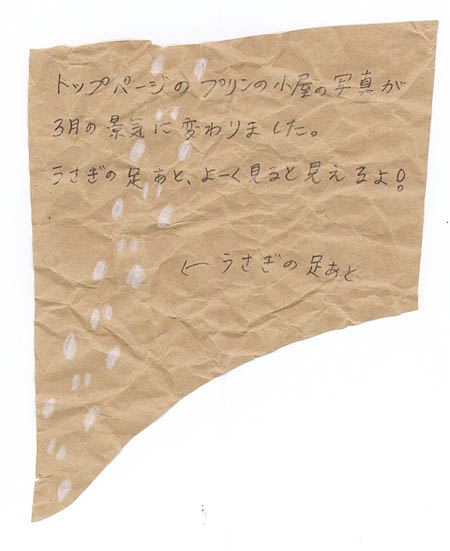 トップページのプリンの小屋の写真が
3月の景気に変わりました。
うさぎの足あと、よーく見ると見えるよ!
← うさぎの足あと